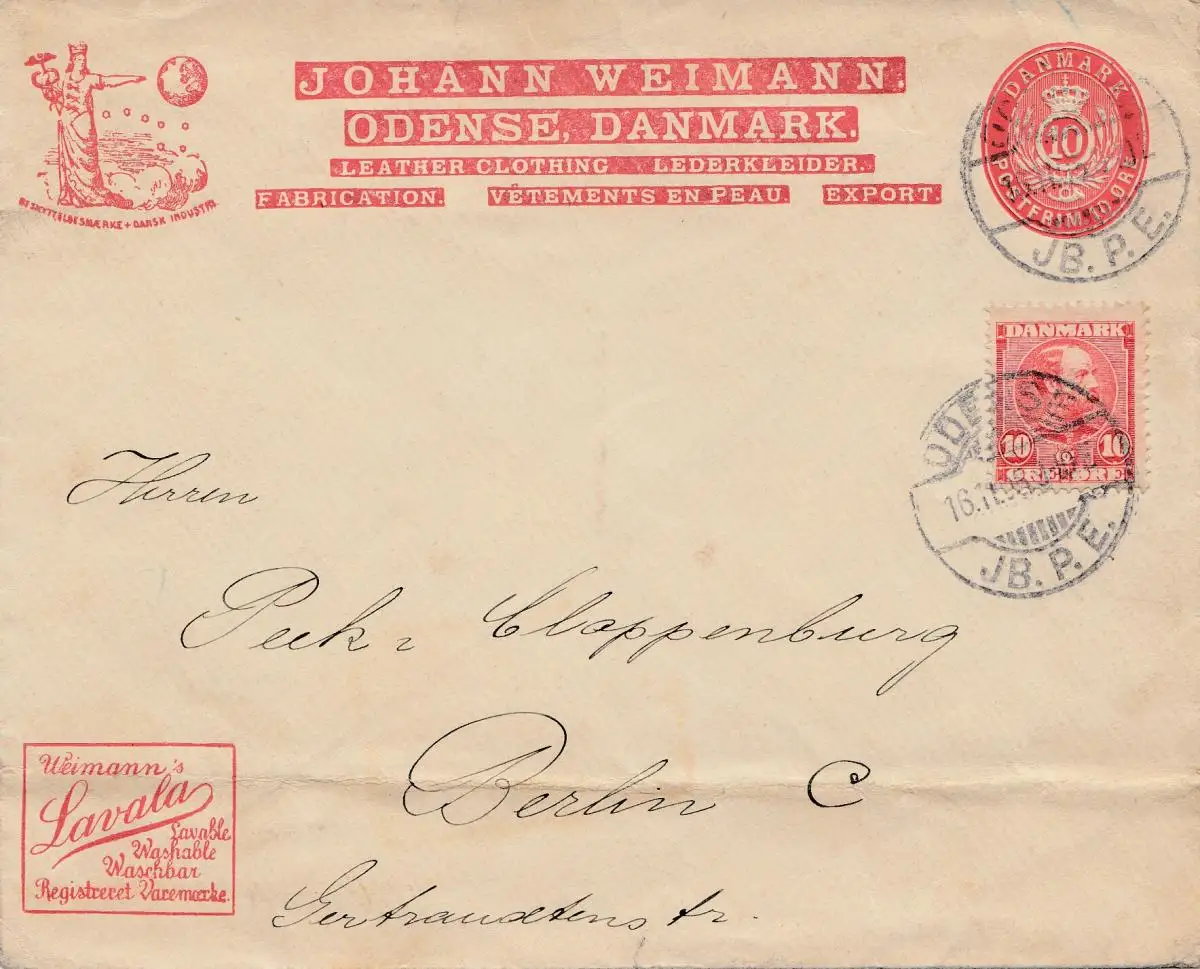 JOHANN WEIMANN.
ODENSE, DANMARK.
LEATHER CLOTHING LEDERKLEIDER.
FABRICATION. VÊTEMENTS EN PEAU. EXPORT.
BESKYTTELSESMÆRKE + DANSK INDUSTRI.
DANMARK
10
POSTFRIM. 10 ØRE
JB. P. E.
DANMARK
10 10
ØRE ØRE
ODENSE
16.11.
JB. P. E.
Herren
Peek & Cloppenburg
Berlin C
Gertraudtenstr.
Weimann's
Lavala
Lavable
Washable
Waschbar
Registreret Varemærke.